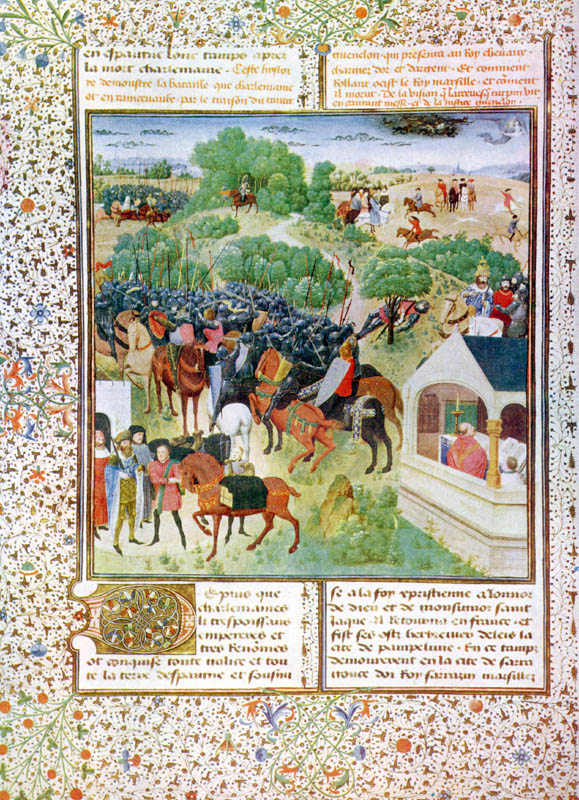 en espaigne long temps apres
la mort charlemaine. Ceste histoi
de demoustre la bataille que charlemaine
ot en raincevaulx par le traison du traitre
guenelon qui presenta au Roy chevaux
chargiez d'or et d'argent. Et comment
Rollant occist le Roy marsille. et coment
il morut. De la vision q̄ larcevesq̄ turpin vit
en chantant messe. et de la iustice guenelon.
Depuis que
charlemaines
li trespuissans
empereres et
tres Renōmes
ot conquise toute galice et tou
te la terre despaigne et soubmi
se a la foy xpristienne a lonnor
de dieu et de monsigneur saint
Jaque. Il Retourna en france. et
fist ses ostz herbergier deleis la
cite de pampelune. En ce tamps
demouroient en la cite de sarra
gouce doi Roy sarrazin marsilles